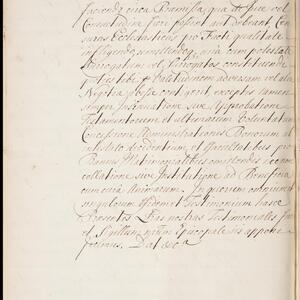 faciendo circa Præmissa, quæ de Jure vel
Consuetudine fieri possint aut debeant Cen
suras Ecclesiasticas pro Facti qualitate
infligendo, remittendo, una cum potestate
Surrogatum vel Surrogatos constituendi
Negotia præsse contigerit, exceptis tamen
semper Insinuatione sive Approbatione
Testamentorum et ultimarum Voluntatum
Concessione Administrationis Bonorum ab
intestato decedentium, et Facultatibus pro
Bannis Matrimonialibus omittendis necnon
collatione sive Institutione ad Beneficia
cum cura Animarum. In quorum omnium et
singulorum fidem et Testimonium hasce
Præsentes L'ras nostras Testimoniales fieri
et Sigillum n'rum Episcopale iis apponi
fecimus. Dat &c.a